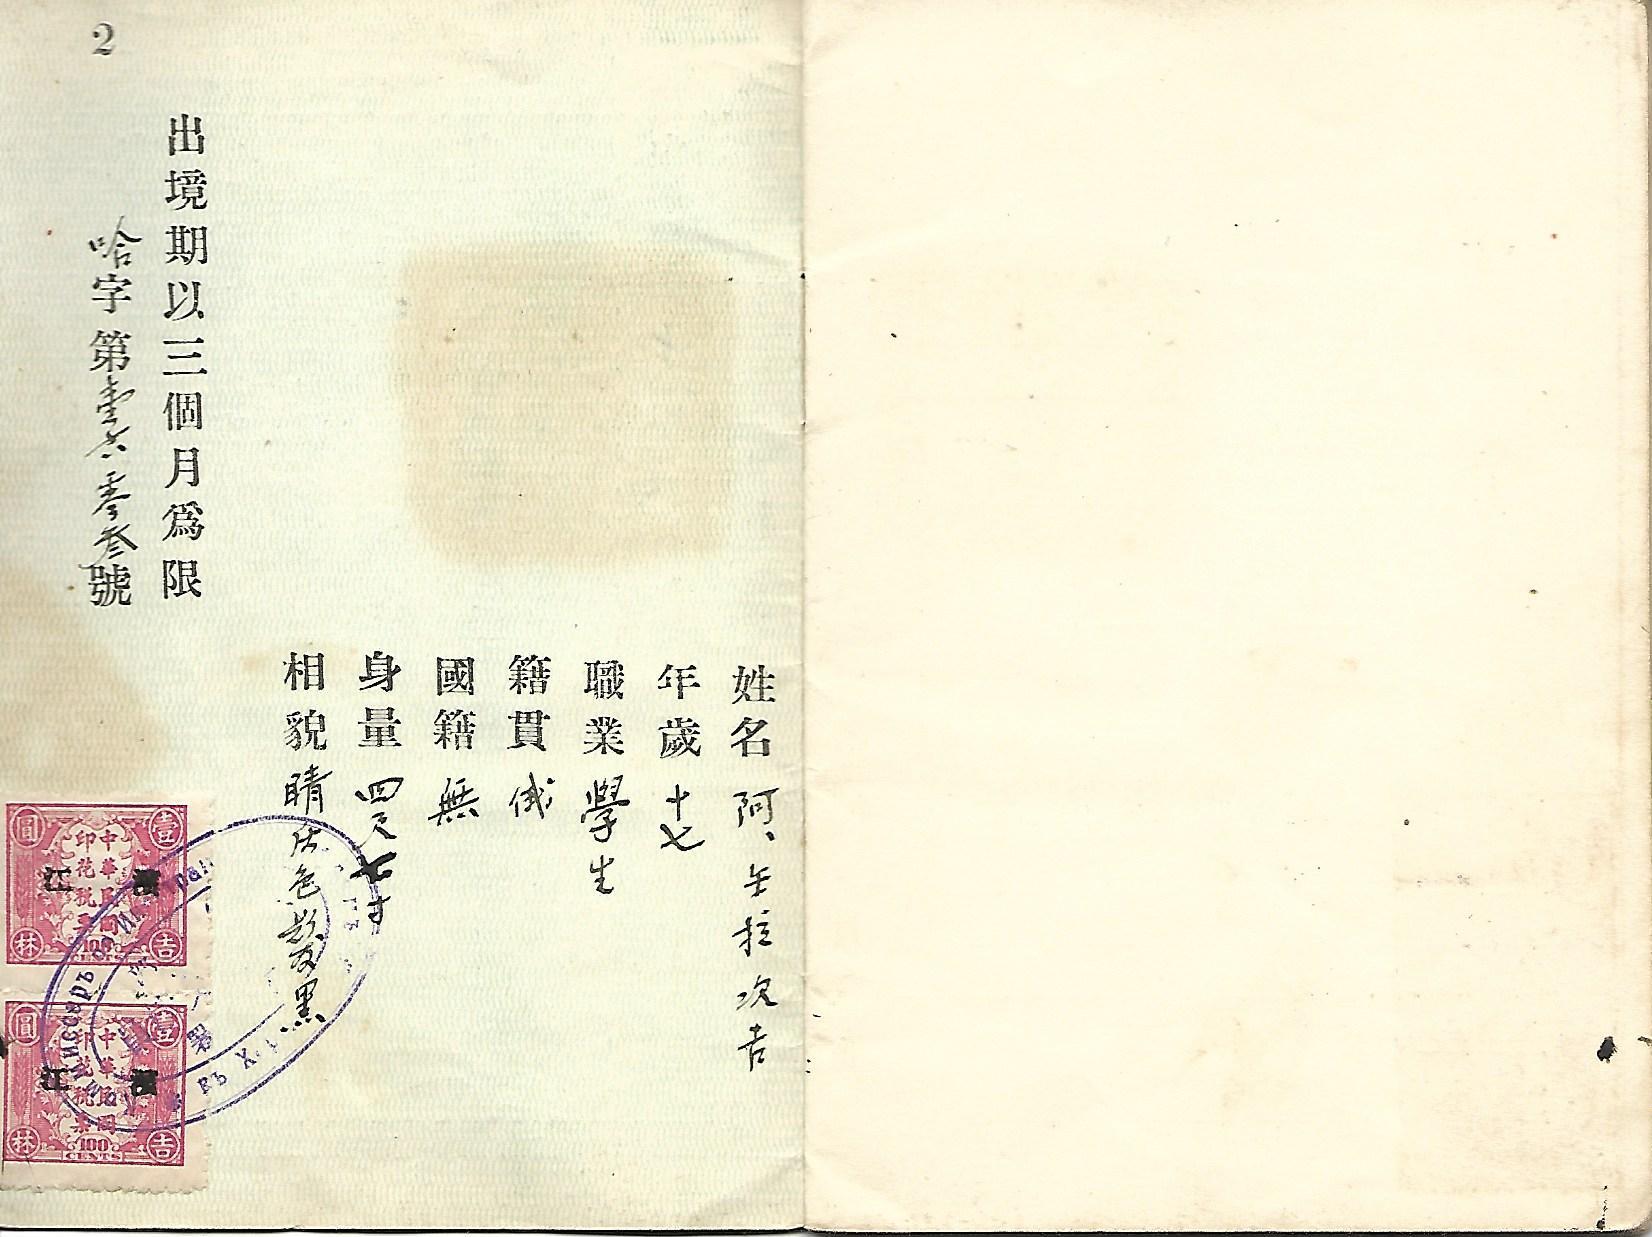 2
姓名 阿、壬拉次吉
年歲 十七
職業 學生
籍貫 俄
國籍 無
身量 四尺七寸
相貌 睛灰色髮黑
出境期以三個月為限
哈字第壹六零叁號
壹圓
中華民國
印花稅票
濱江
100
CENTS
吉林
壹圓
中華民國
印花稅票
濱江
100
CENTS
吉林